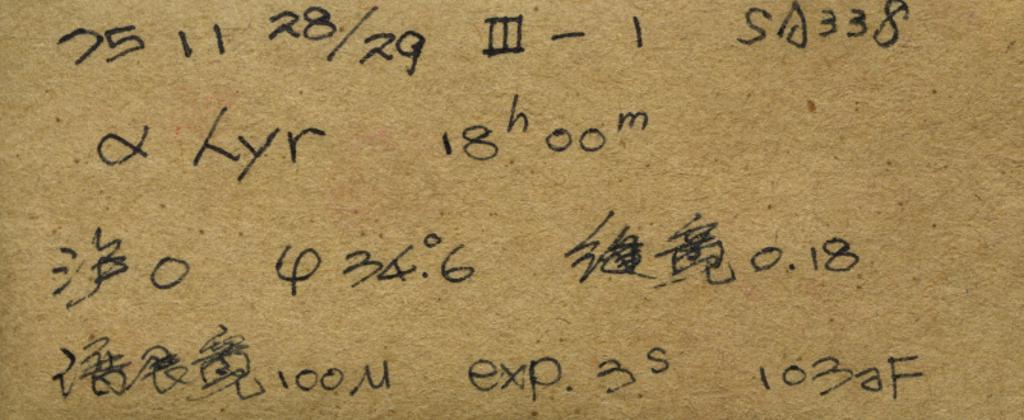 75 11 28/29 III - 1 SA338
α Lyr 18ʰ 00ᵐ
0 φ 34°.6 缝宽 0.18
谱展宽 100μ exp. 3ˢ 103aF